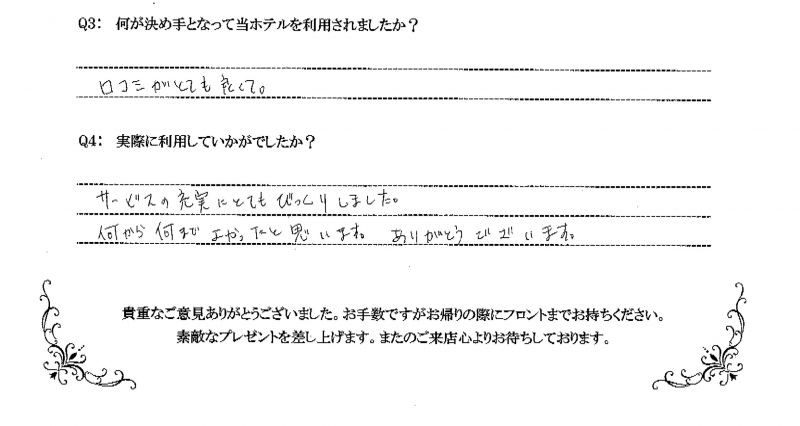 Q3: 何が決め手となって当ホテルを利用されましたか？
口コミがとても良くて。
Q4: 実際に利用していかがでしたか？
サービスの充実にとてもびっくりしました。
何から何までよかったと思います。ありがとうございます。
貴重なご意見ありがとうございました。お手数ですがお帰りの際にフロントまでお持ちください。
素敵なプレゼントを差し上げます。またのご来店心よりお待ちしております。